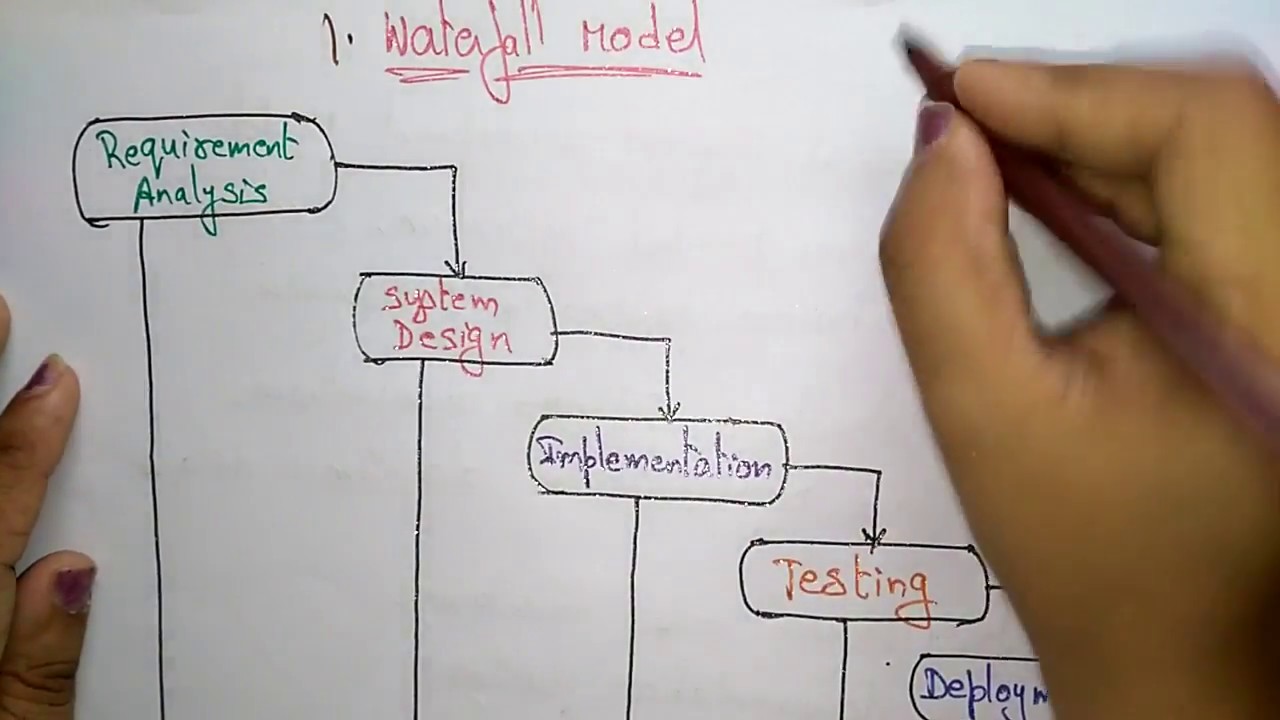 1. Waterfall Model
Requirement
Analysis
System
Design
Implementation
Testing